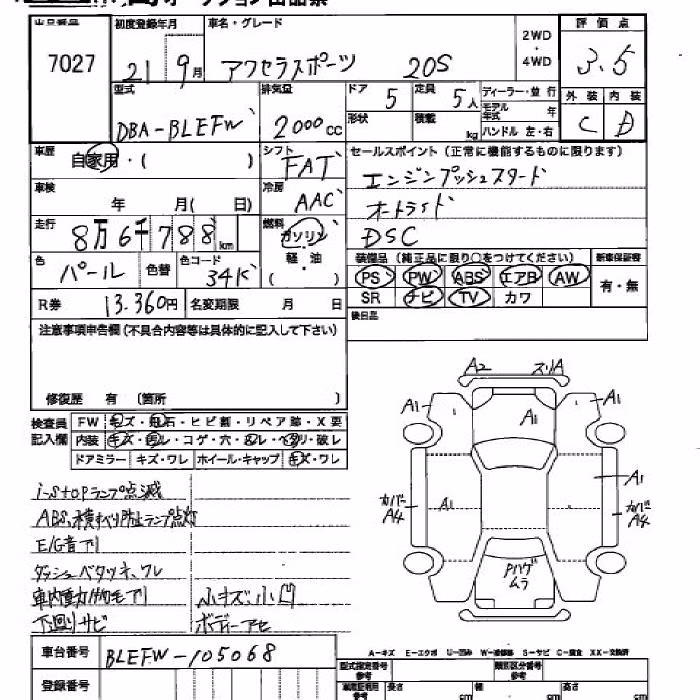 出品番号 初度登録年月 車名・グレード 2WD・4WD 評価点
7027 21 9月 アクセラスポーツ 20S 3.5
型式 排気量 ドア 5 定員 5人 ディーラー・並行 外装 内装
DBA-BLEFW 2000cc 形状 積載 kg モデル年式 年 C D
ハンドル 左・右
車歴 自家用・( ) シフト FAT セールスポイント(正常に機能するものに限ります)
車検 年 月( 日) 冷房 AAC エンジンプッシュスタート
オートライト
走行 8万6千788km 燃料 ガソリン DSC
軽・油 ( )
色 パール 色替 色コード 34K 装備品(純正品に限り○をつけてください) 新車保証書
PS PW ABS エアB AW 有・無
R券 13.360円 名変期限 月 日 SR ナビ TV カワ
注意事項申告欄(不具合内容等は具体的に記入して下さい) 後日品
修復歴 有 〔箇所 〕
検査員記入欄 FW キズ・飛石・ヒビ割・リペア跡・X要
内装 キズ・・コゲ・穴・・・破レ
ドアミラー キズ・ワレ ホイール・キャップ キズ・ワレ
i-stopランプ点滅
ABS、横すべり防止ランプ点灯
E/G音アリ
ダッシュベタツキ、ワレ
車内 アリ 小キズ、小凹
下廻りサビ ボディー
A2 スリA
A1 A1 A1
カバーA4 A1 A1 カバーA4
Pハゲ ムラ
A-キズ E-エクボ U-凹み W-補修跡 S-サビ C-腐食 XX-交換済
車台番号 BLEFW-105068 型式指定番号 参考 類別区分番号 参考
登録番号 参考 長さ cm 幅 cm 高さ cm